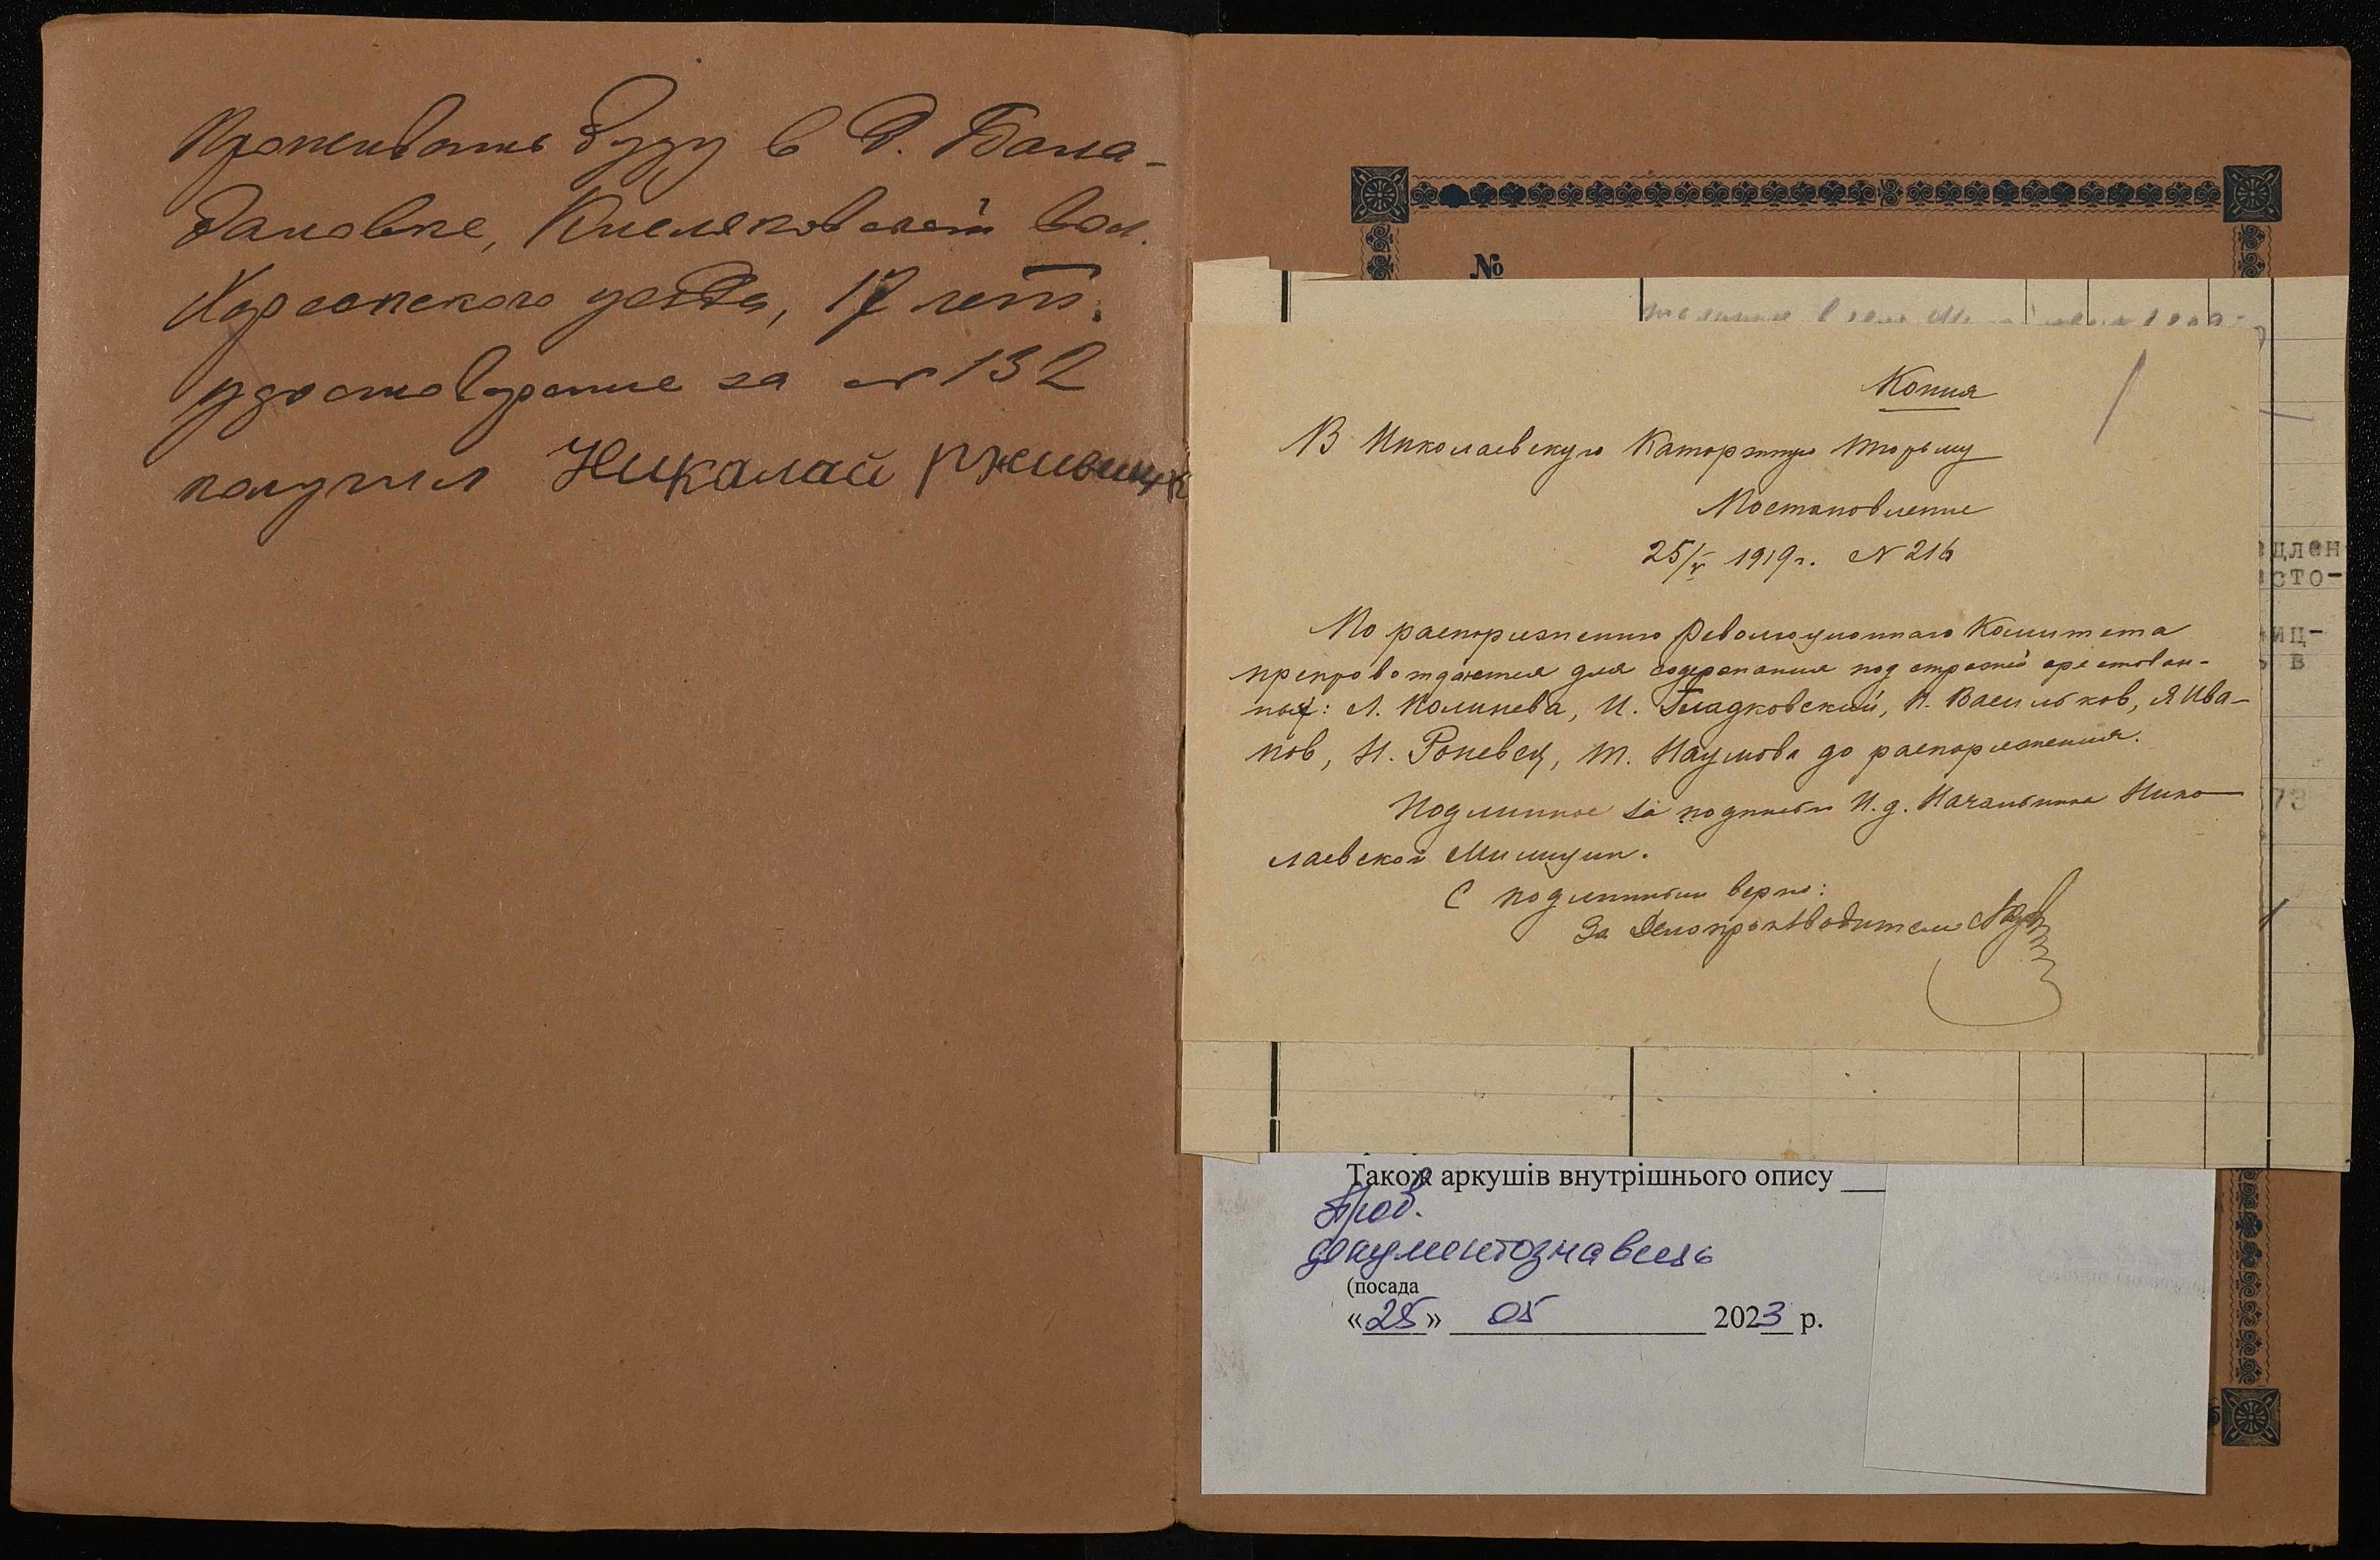 Проживать буду в д. Бала-
бановке, Кисляковской вол.
Херсонского уезда, 17 лет.
удостоверение за № 132
получил Николай
№
Копия
В Николаевскую Каторжную тюрьму
Постановление
25/V 1919 г. № 216
По распоряжению Революционного Комитета
препровождаются для содержания под стражей арестован-
ных: Л. Калинева, И. Гладковский, К. Васильков, Я Ива-
нов, Н. Роневец, Т. Наумова до распоряжения.
Подлинное за подписью И.д. Начальника Нико-
лаевской Милиции.
С подлинным верно:
За Делопроизводителя
длен
сто-
иц-
в
73
Також аркушів внутрішнього опису
Пров.
документознавець
(посада
«25» 05 2023 р.